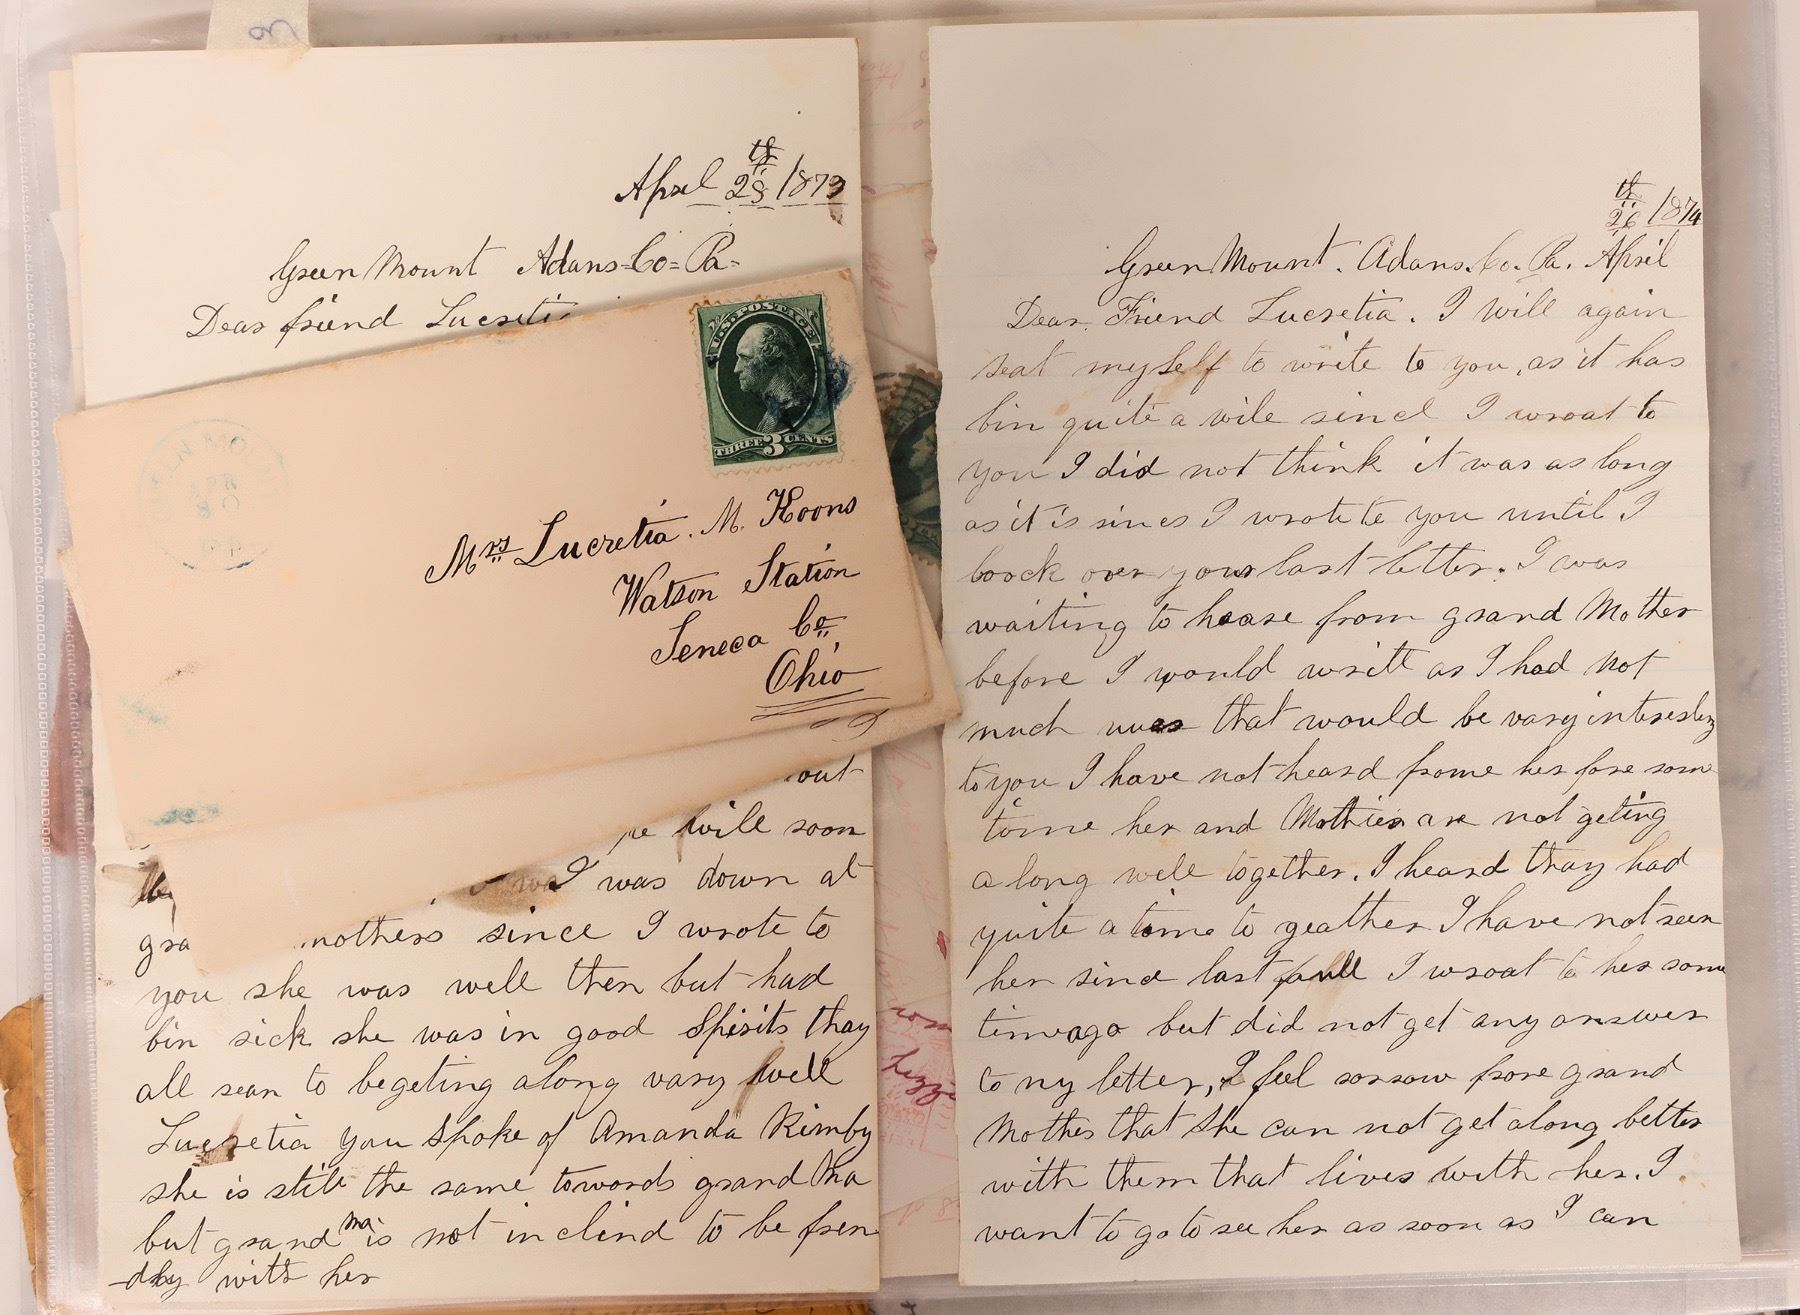 April 28th 1873
Green Mount Adams=Co=Pa=
Dear friend Lucretia
U.S. POSTAGE
THREE 3 CENTS
APR
30
Mrs Lucretia. M. Koons
Watson Station
Seneca Co.
Ohio
out
will soon
I was down at
gra mothers since I wrote to
you she was well then but had
bin sick she was in good Spirits thay
all sean to be geting along vary well
Lucretia you Spoke of Amanda Rimby
she is still the same towords grand Ma
but grand ma is not in clend to be fren
-dly with her
26th 1874
Green Mount. Adams. Co. Pa. April
Dear Friend Lucretia. I will again
seat myself to write to you, as it has
bin quite a wile sincl I wroat to
you I did not think it was as long
as it is sinces I wrote to you until I
loock over your last letter. I was
waiting to heare from grand Mother
before I would writt as I had not
much nues that would be vary interesting
to you I have not heard frome her fore some
time her and Mothies are not geting
a long well together. I heard thay had
quite a time to geather I have not seen
her sinc last faull I wroat to her some
time ago but did not get any answer
to my letter, I feel sorrow fore grand
Mother that She can not get along better
with them that lives with her. I
want to go to see her as soon as I can